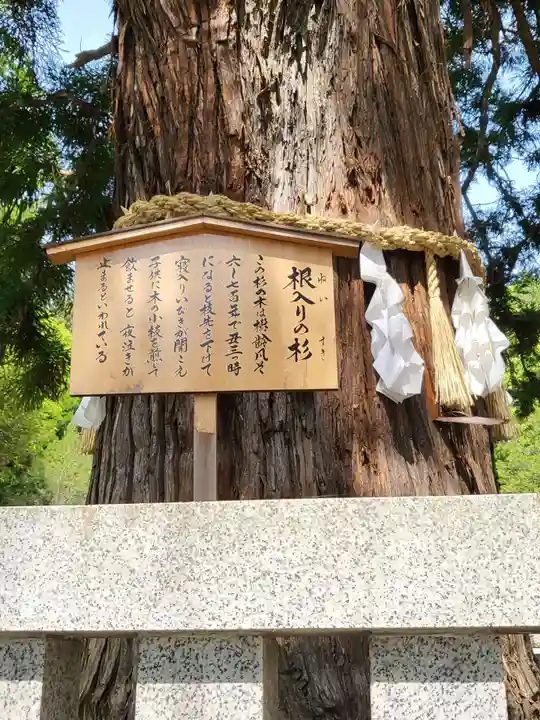 根入りの杉
ねいすぎ
この杉の木は樹齢凡そ
六〜七百年で丑三つ時
になると枝先を下げて
寝入りいびきが聞こえ
子供に木の小枝を煎じて
飲ませると夜泣きが
止まるといわれている